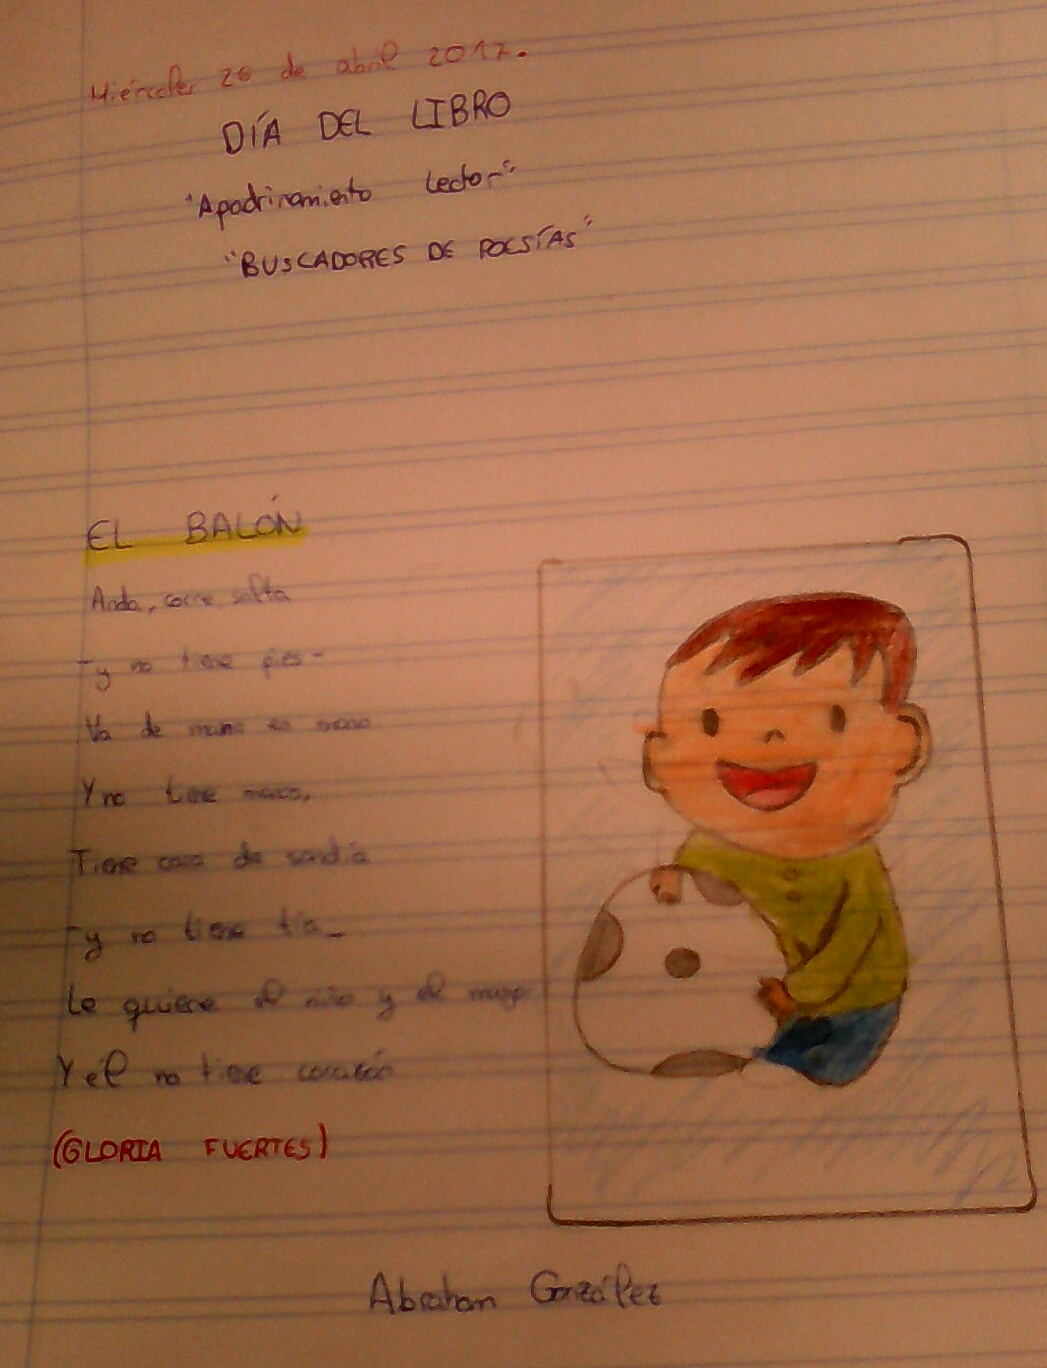 Miércoles 26 de abril 2017.
DÍA DEL LIBRO
"Apadrinamiento Lector"
"BUSCADORES DE POESÍAS"
EL BALÓN
Anda, corre, salta
-y no tiene pies-
Va de mano en mano
Y no tiene manos,
Tiene cara de sandía
-y no tiene tía-
Le quiere el niño y el mayor
Y él no tiene corazón
(GLORIA FUERTES)
Abraham González